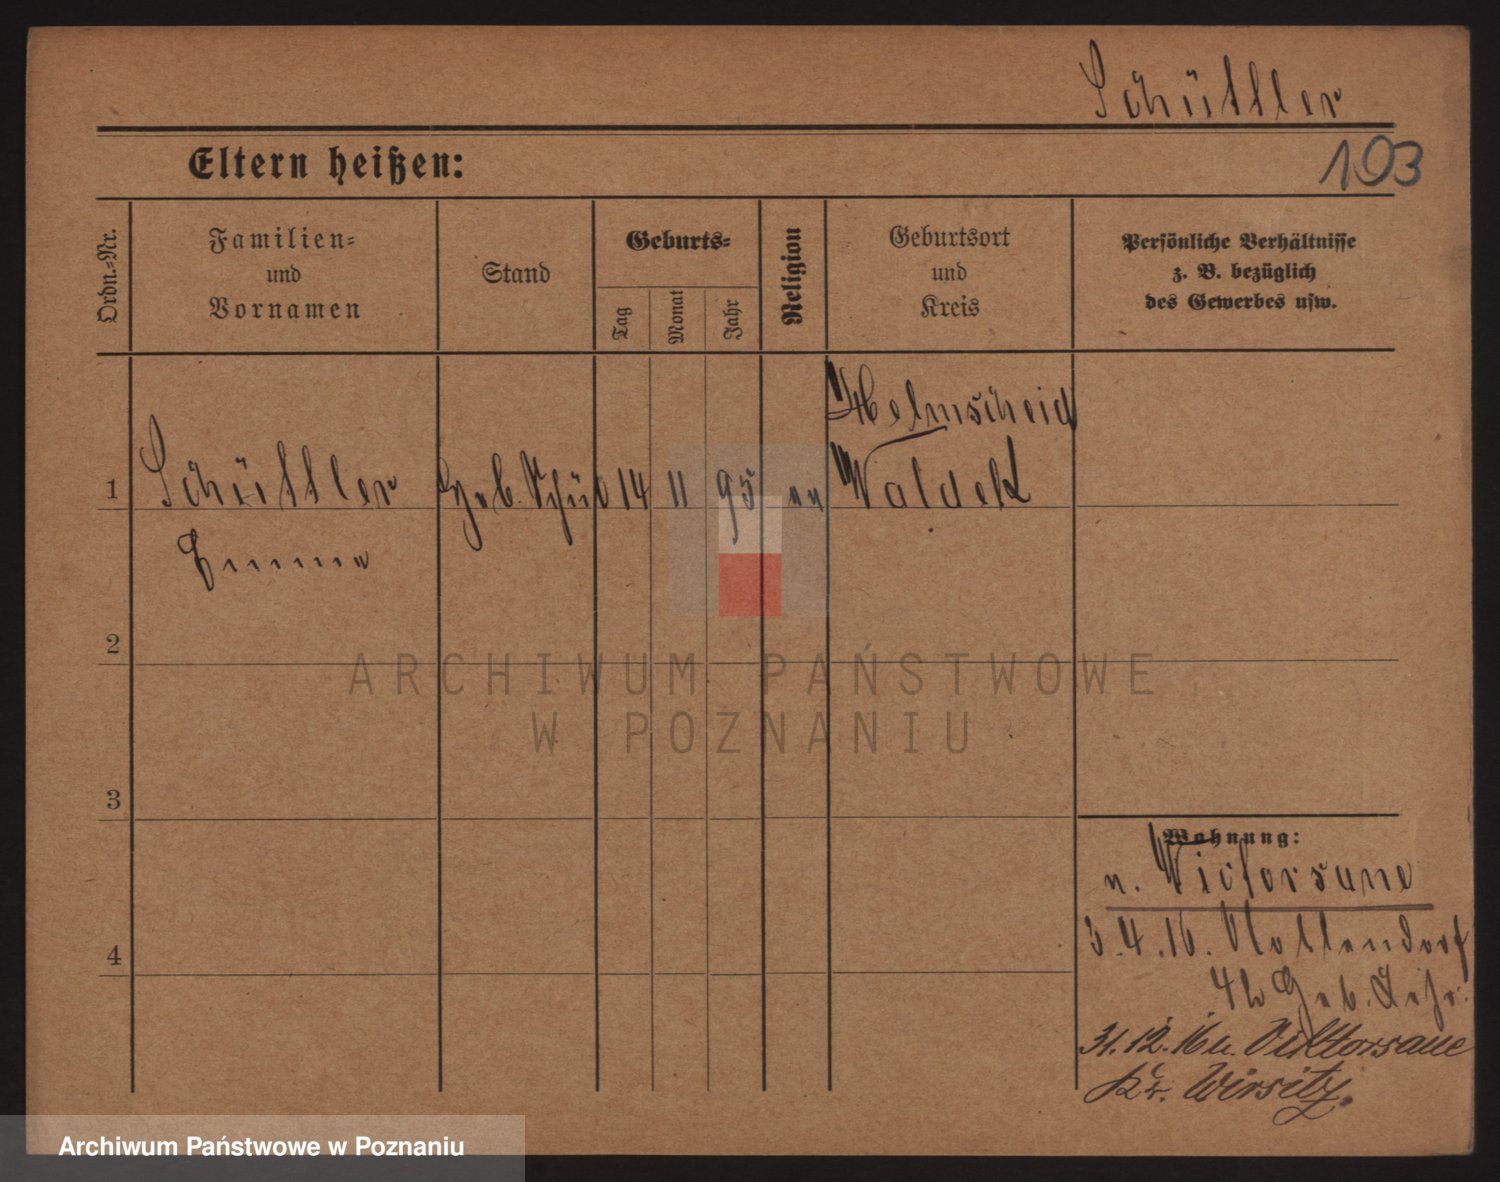 Schüttler
103
Eltern heißen:
Ordn.-Nr.
Familien-
und
Vornamen
Stand
Geburts-
Tag
Monat
Jahr
Religion
Geburtsort
und
Kreis
Persönliche Verhältnisse
z. B. bezüglich
des Gewerbes usw.
Helmscheid
1 Schüttler Geb. 14 11 95 Waldek
Emma
2
3
4
Wohnung:
n. Victorsaue
3.4.16. Nottendorf
Geb.
31.12.16 n. Viktorsaue
Kr. Wirsitz.
ARCHIWUM PAŃSTWOWE
W POZNANIU
Archiwum Państwowe w Poznaniu